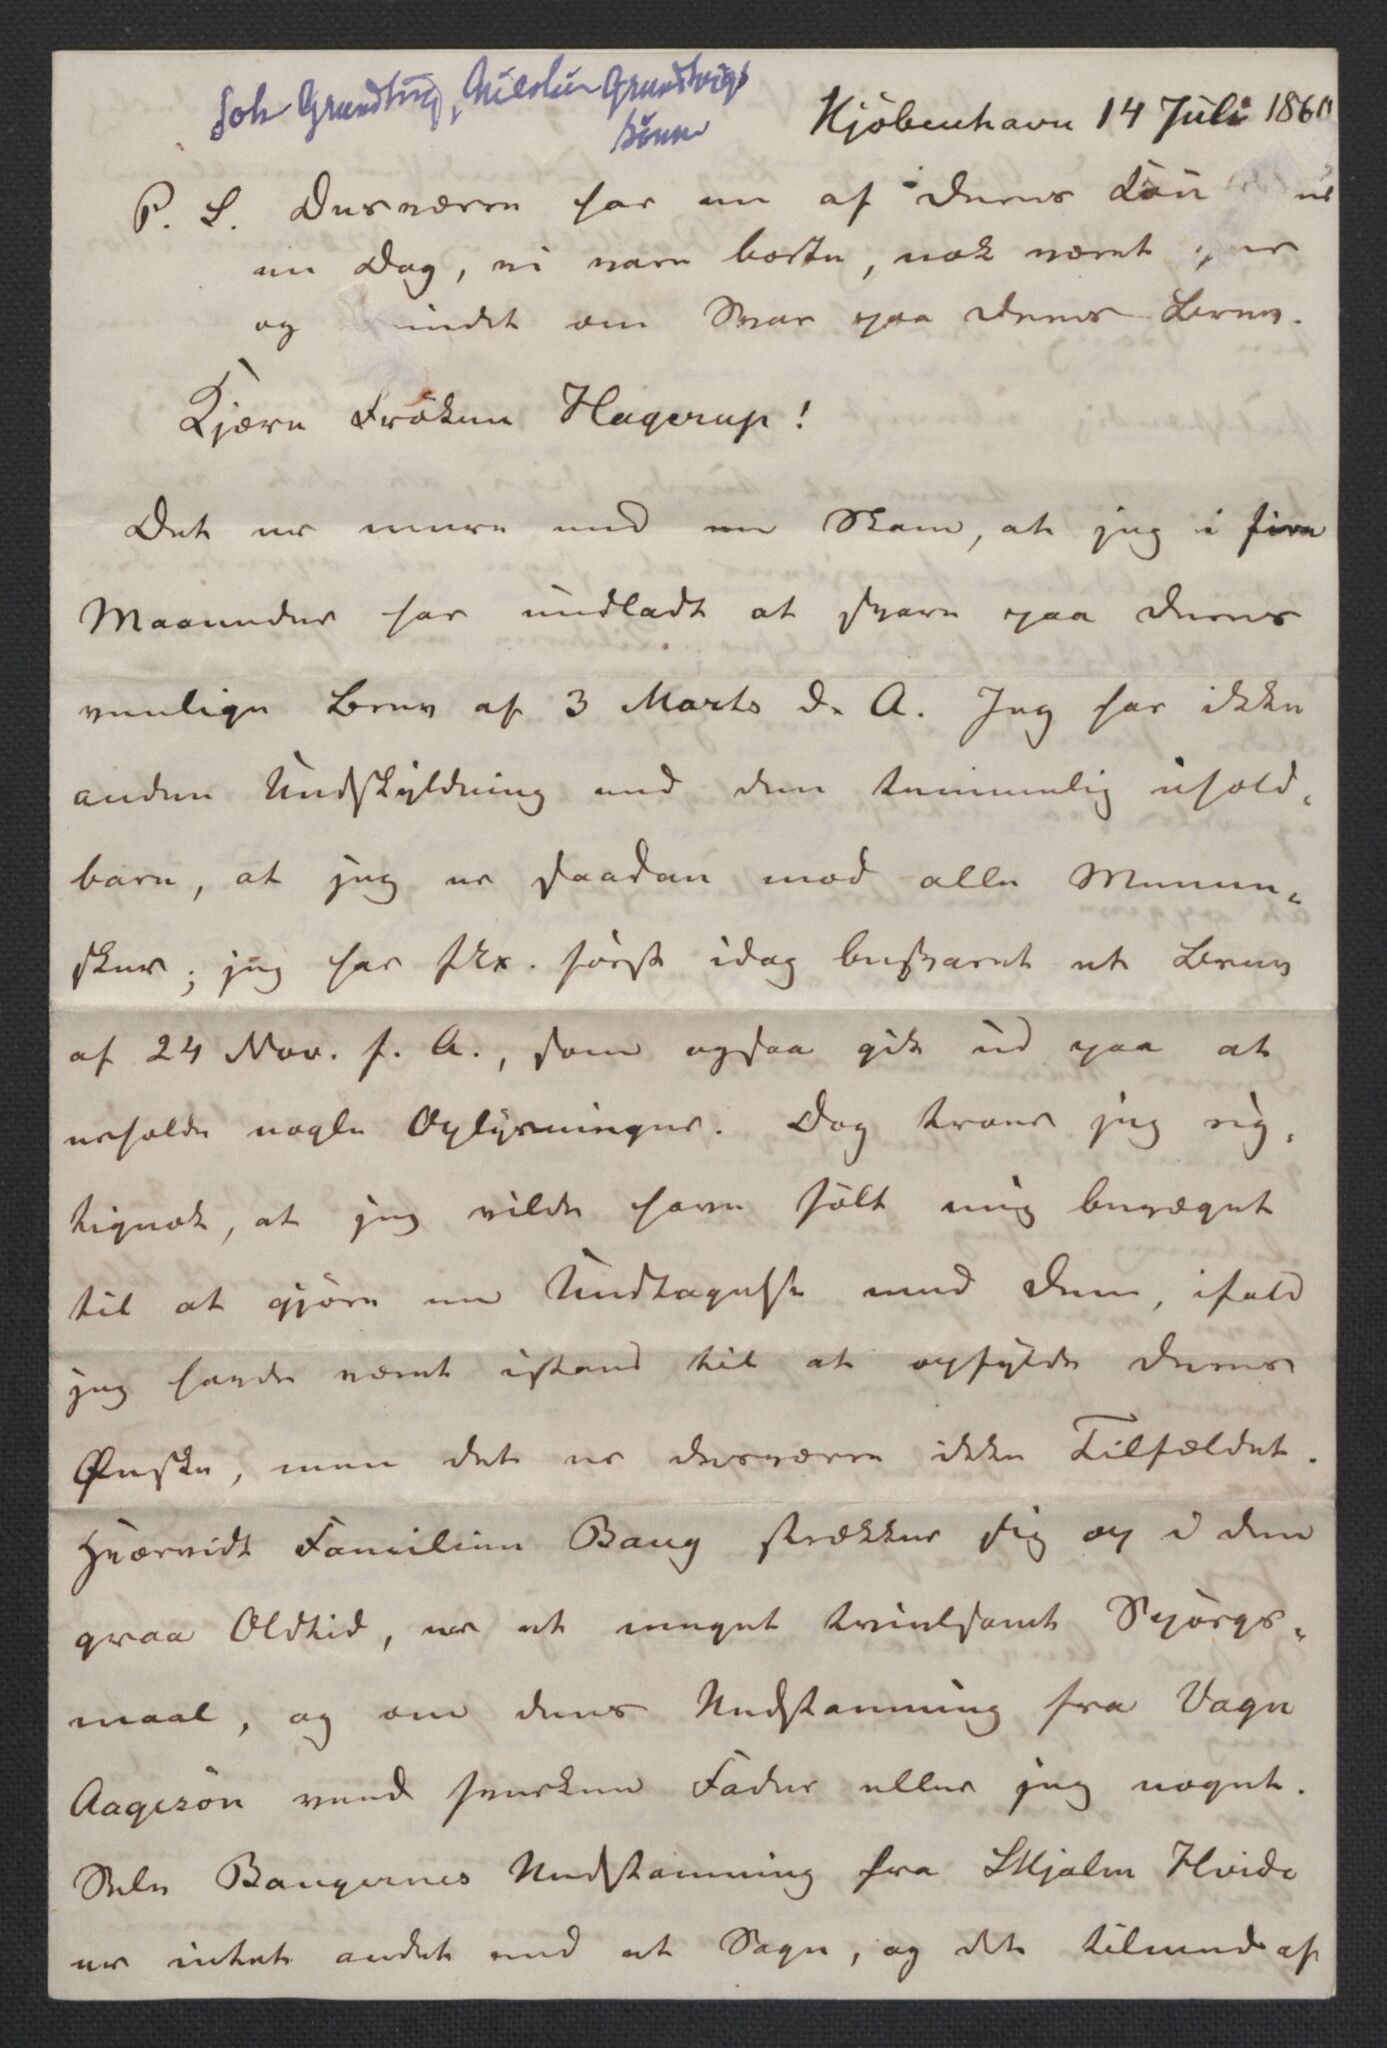 Joh Grundtvig, Nicolai Grundtvigs
sönn
Kjöbenhavn 14 Juli 1860
P. S. Desværre har en af Deres
en Dag, vi vare borte, nok været her
og mindet om Svar paa Deres Brev.
Kjære Fröken Hagerup!
Det er mere end en Skam, at jeg i fire
Maaneder har undladt at svare paa Deres
venlige Brev af 3 Marts d. A. Jeg har ikke
anden Undskyldning end den temmelig uhold-
bare, at jeg er saadan mod alle Mennes-
sker; jeg har f. Ex. först idag besvaret et Brev
af 24 Nov. f. A., som ogsaa gik ud paa at
erholde nogle Oplysninger. Dog troer jeg rig-
tignok, at jeg vilde have fölt mig bevæget
til at gjöre en Undtagelse med Dem, ifald
jeg havde været istand til at opfylde Deres
Ønske, men det er desværre ikke Tilfældet.
Hvorvidt Familien Bang strækker sig op i den
graa Oldtid, er et meget tvivlsomt Spörgs-
maal, og om dens Nedstamning fra Vagn
Aagesön veed hverken Fader eller jeg noget.
Selv Bangernes Nedstamning fra Skjalm Hvide
er intet andet end et Sagn, og det tilmed af